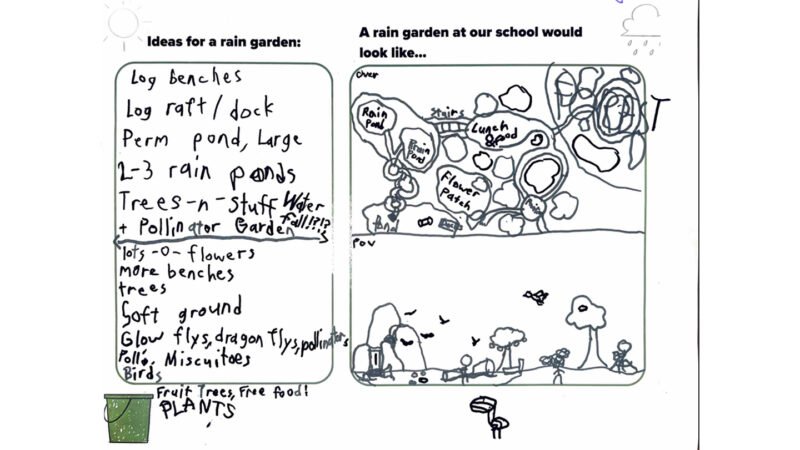 Ideas for a rain garden:
Log benches
Log raft / dock
Perm pond, Large
2-3 rain ponds
Trees-n-stuff Water
+ Pollinator Garden fall!?!?
lots -o- flowers
more benches
trees
Soft ground
Glow flys, dragon flys, pollinators
Polli. Miscuitoes
Birds
Fruit Trees, Free food!
PLANTS
A rain garden at our school would
look like...
Over
Rain
Pond
Stairs
Lunch
&food
Rain
Pond
Flower
Patch
POV